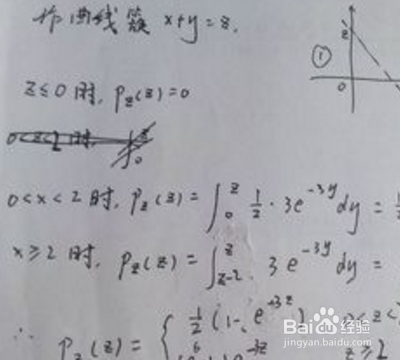 作曲线簇 x+y=z.
①
z
0
z≤0 时, P_z(z)=0
0<x<2 时, P_z(z)=∫_0^z 1/2·3e^{-3y}dy=
x≥2 时, P_z(z)=∫_{z-2}^z 3e^{-3y}dy=
∴ P_z(z)={ 1/2(1-e^{-3z})
z≥2
Bai度经验
jingyan.baidu.com